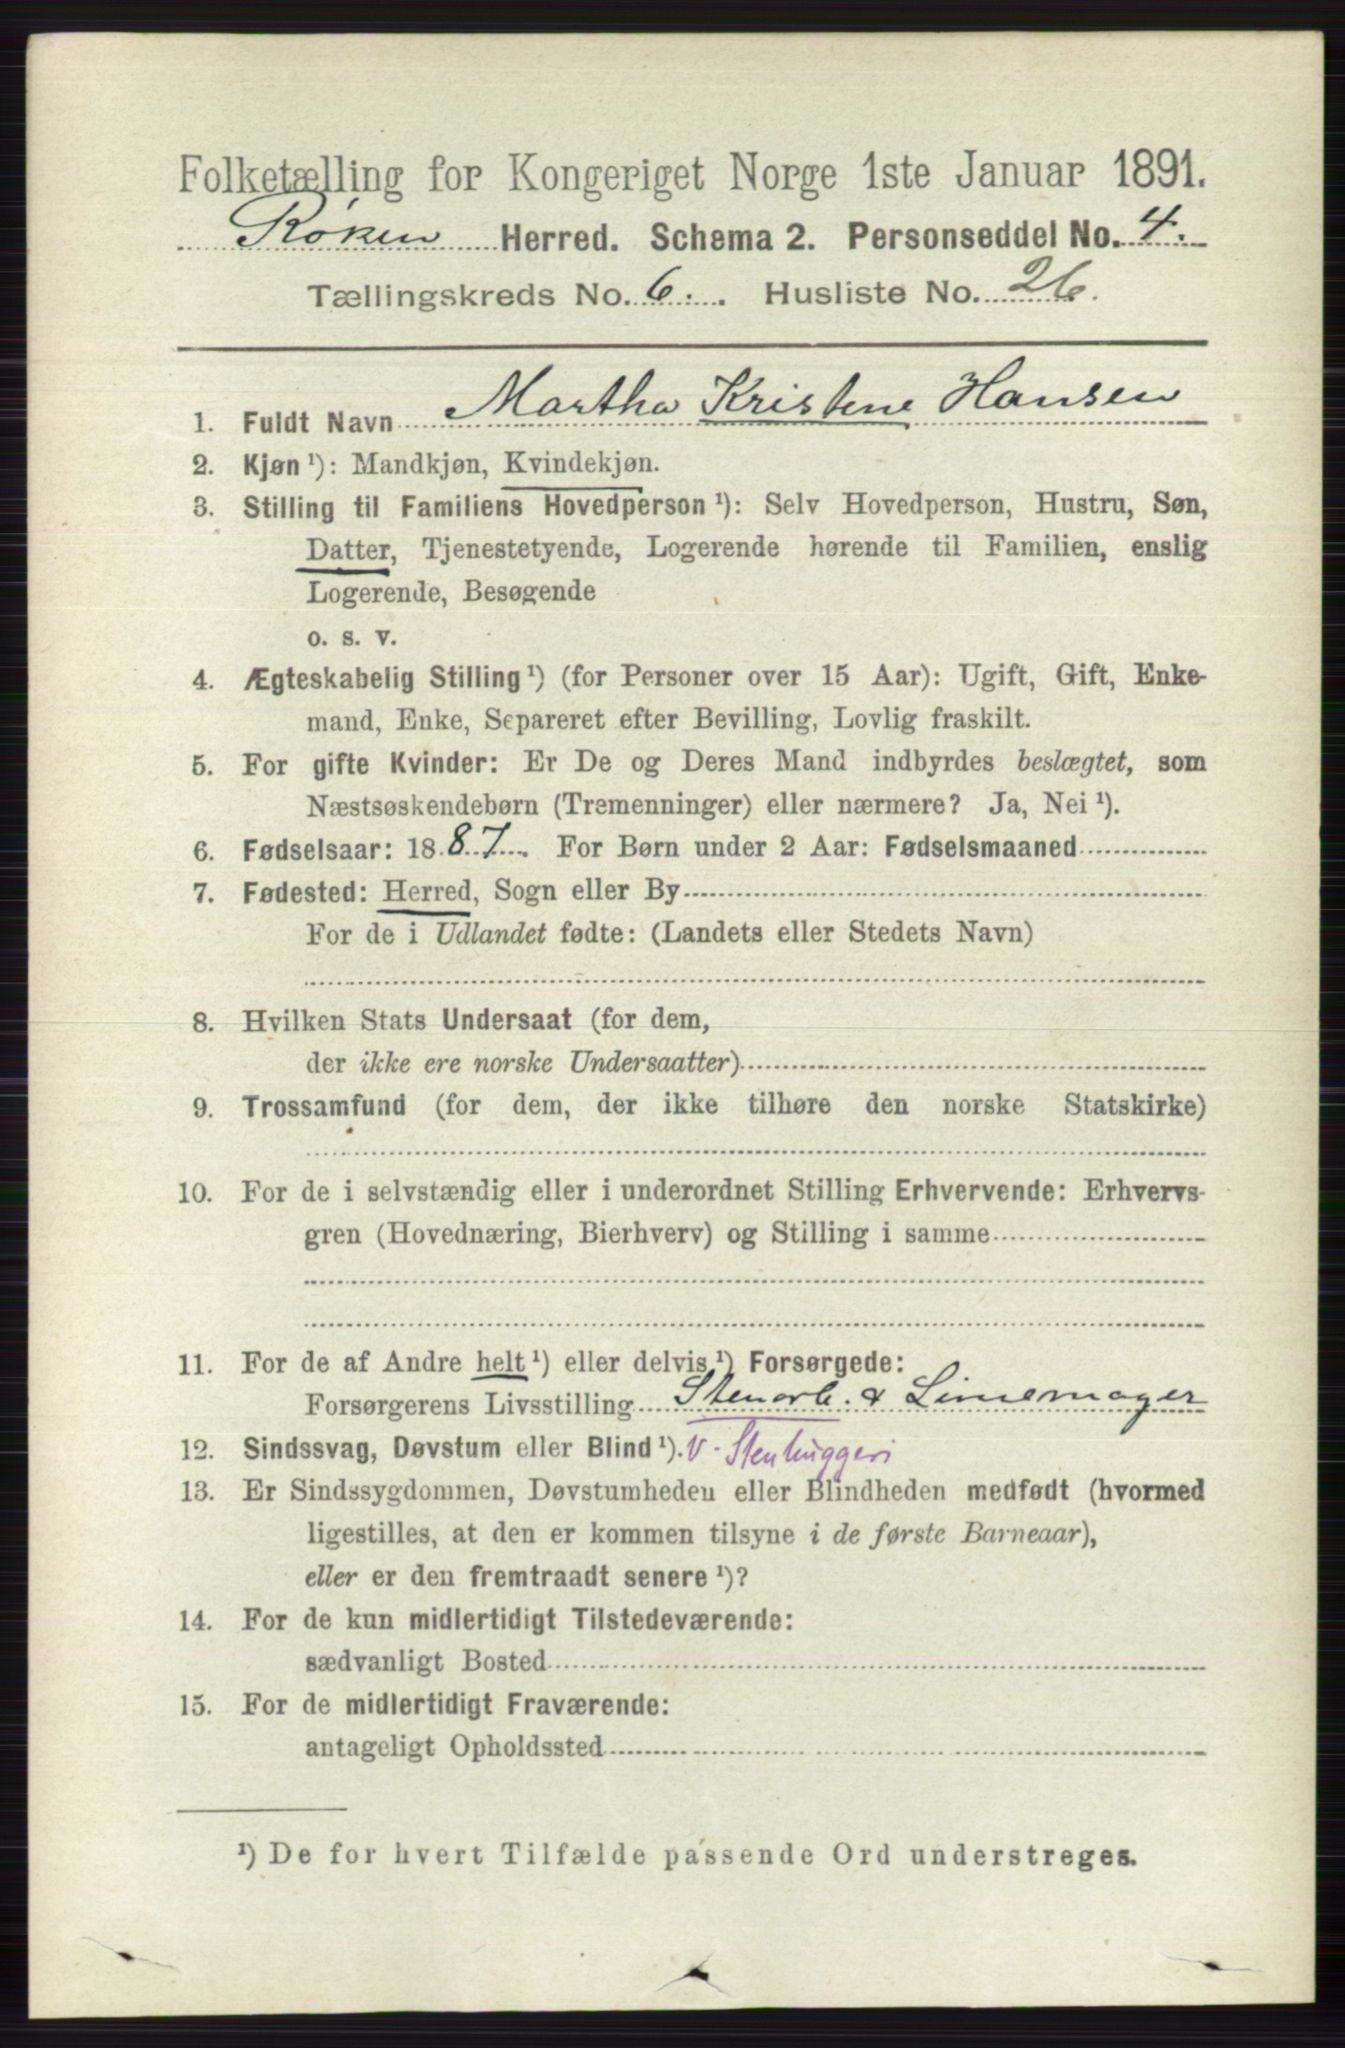 Folketælling for Kongeriget Norge 1ste Januar 1891.
Røken Herred. Schema 2. Personseddel No. 4.
Tællingskreds No. 6. Husliste No. 26.
1. Fuldt Navn Martha Kristine Hansen
2. Kjøn ¹): Mandkjøn, Kvindekjøn.
3. Stilling til Familiens Hovedperson ¹): Selv Hovedperson, Hustru, Søn,
Datter, Tjenestetyende, Logerende hørende til Familien, enslig
Logerende, Besøgende
o. s. v.
4. Ægteskabelig Stilling ¹) (for Personer over 15 Aar): Ugift, Gift, Enke-
mand, Enke, Separeret efter Bevilling, Lovlig fraskilt.
5. For gifte Kvinder: Er De og Deres Mand indbyrdes beslægtet, som
Næstsøskendebørn (Tremenninger) eller nærmere? Ja, Nei ¹).
6. Fødselsaar: 1887. For Børn under 2 Aar: Fødselsmaaned
7. Fødested: Herred, Sogn eller By
For de i Udlandet fødte: (Landets eller Stedets Navn)
8. Hvilken Stats Undersaat (for dem,
der ikke ere norske Undersaatter)
9. Trossamfund (for dem, der ikke tilhøre den norske Statskirke)
10. For de i selvstændig eller i underordnet Stilling Erhvervende: Erhvervs-
gren (Hovednæring, Bierhverv) og Stilling i samme
11. For de af Andre helt ¹) eller delvis ¹) Forsørgede:
Forsørgerens Livsstilling Stenarb. & Limemager
12. Sindssvag, Døvstum eller Blind ¹). v. Stenhuggeri
13. Er Sindssygdommen, Døvstumheden eller Blindheden medfødt (hvormed
ligestilles, at den er kommen tilsyne i de første Barneaar),
eller er den fremtraadt senere ¹)?
14. For de kun midlertidigt Tilstedeværende:
sædvanligt Bosted
15. For de midlertidigt Fraværende:
antageligt Opholdssted
¹) De for hvert Tilfælde passende Ord understreges.